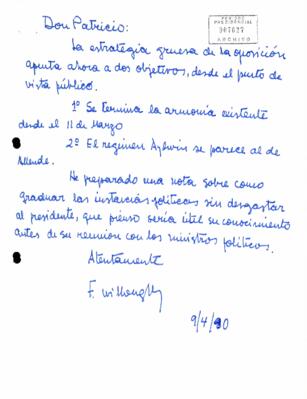 Don Patricio:
PERIODO
PRESIDENCIAL
007027
ARCHIVO
La estrategia gruesa de la oposición
apunta ahora a dos objetivos, desde el punto de
vista público.
1º Se termina la armonía existente
desde el 11 de Marzo
2º El regimen Aylwin se parece al de
Allende.
He preparado una nota sobre como
graduar las instancias políticas sin desgastar
al presidente, que pienso sería útil su conocimiento
antes de su reunión con los ministros políticos.
Atentamente
F. Willoughby
9/4/90